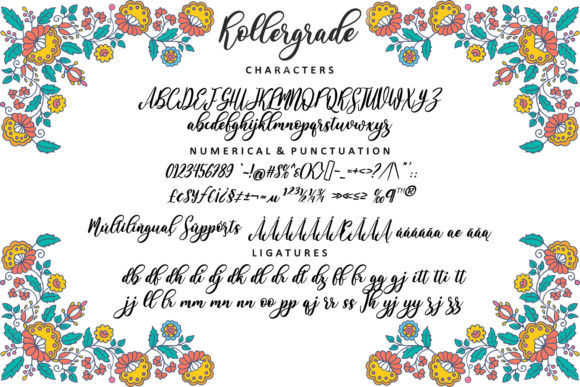 Rollergrade
CHARACTERS
ABCDEFGHIJKLMNOPQRSTUVWXYZ
abcdefghijklmnopqrstuvwxyz
NUMERICAL & PUNCTUATION
0123456789 `~!@#$%^&()<>{}[]-_=+<>?/|\"':;
£¢$yƒ€i¿§±¬≈µ ¹²³½¼¾ »«≤≥ ‰¶™®
Multilingual Supports ÀÁÂÃÄÅÆĀĂĄ àáâãäå ae āăą
LIGATURES
db df dh di dj dk dl dr dt dz ff fr gg gj itt tti tt
jj ll lr mm mn nn oo pp qj rr ss Th yj yy zj zz